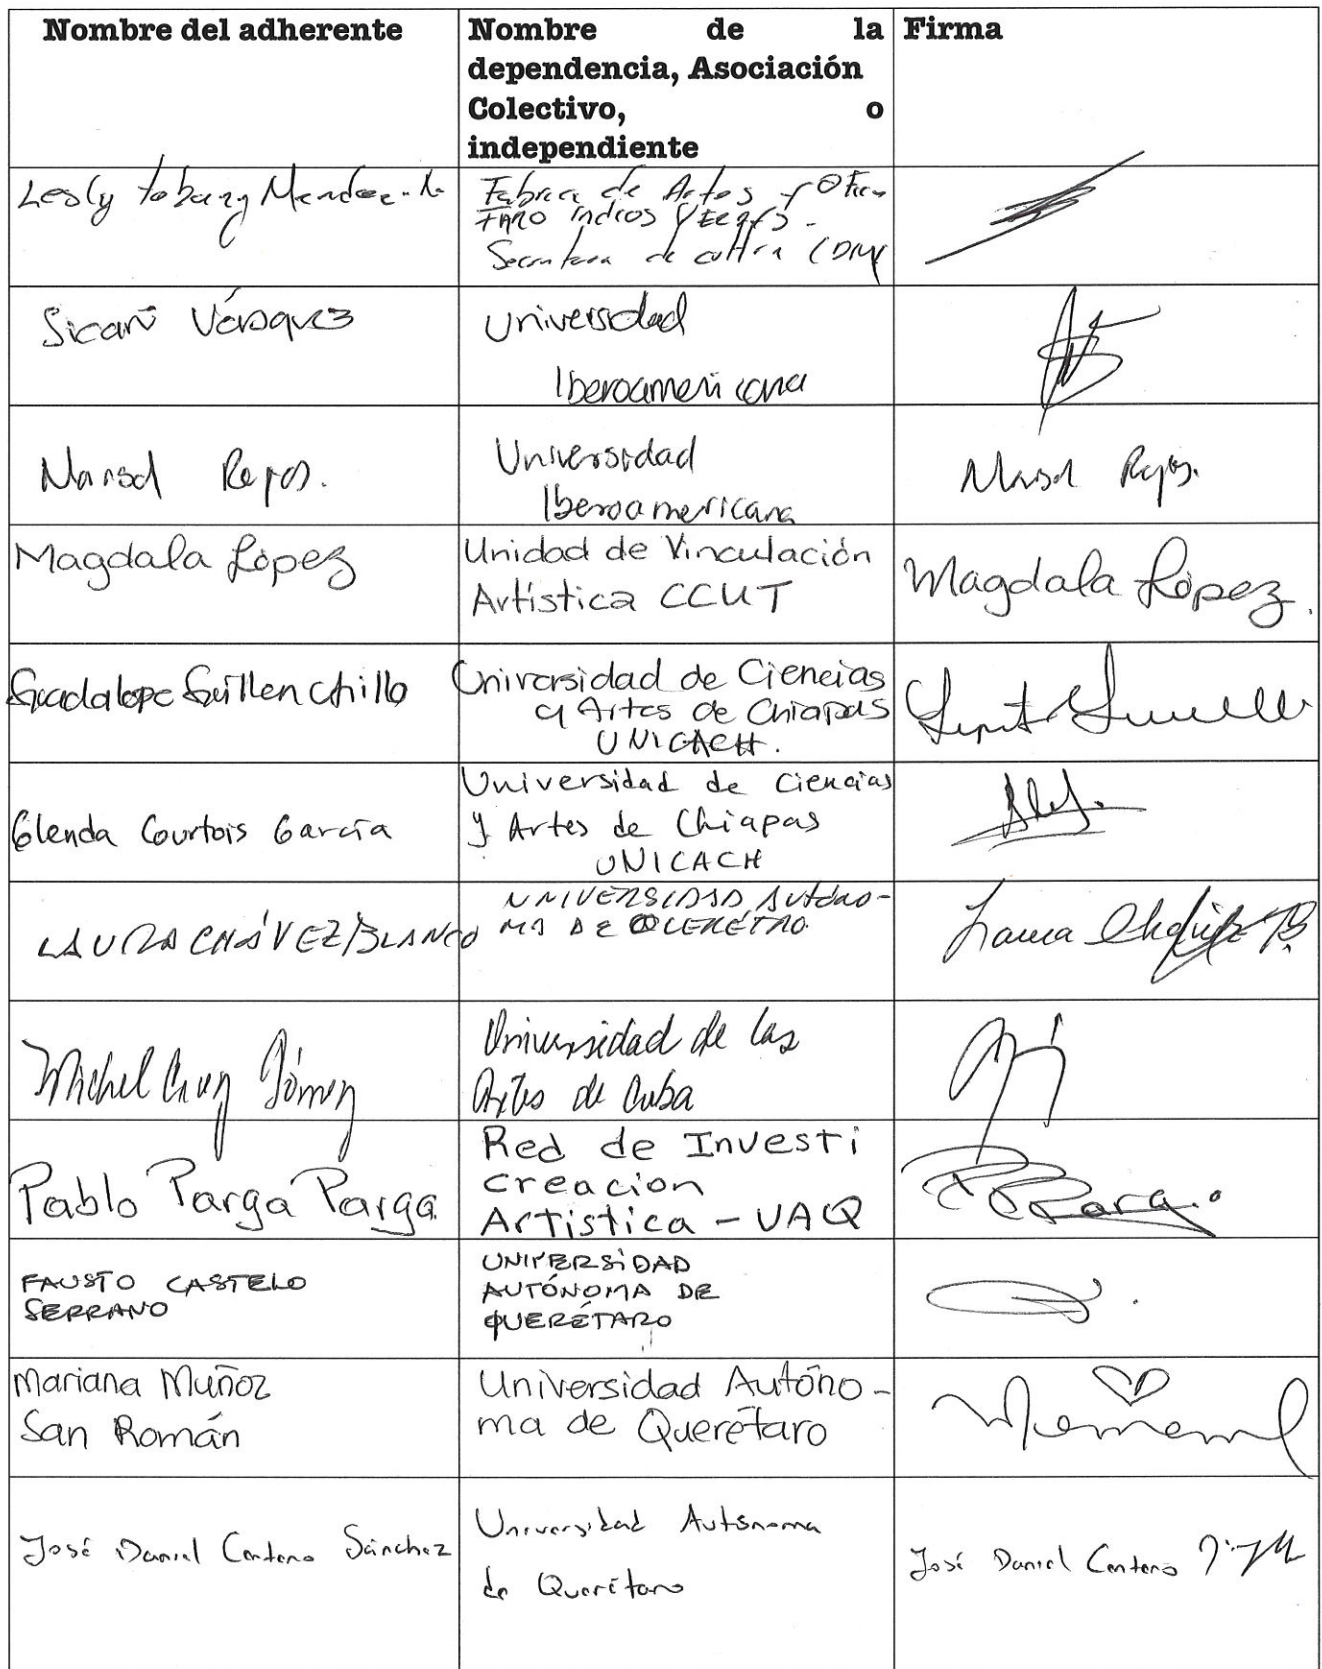 Nombre del adherente
Nombre de la
dependencia, Asociación
Colectivo, o
independiente
Firma
Lesly
Fabrica de Artes y
FARO Indios Verdes -
Secretaria de cultura CDMX
Vásquez
Universidad
Iberoamericana
Marisol Rojas.
Universidad
Iberoamericana
Marisol Rojas.
Magdala López
Unidad de Vinculación
Artística CCUT
Magdala López.
Guadalupe Guillen Chillo
Universidad de Ciencias
y Artes de Chiapas
UNICACH.
Glenda Courtois García
Universidad de Ciencias
y Artes de Chiapas
UNICACH
LAURA CHÁVEZ BLANCO
UNIVERSIDAD AUTÓNO-
MA DE QUERÉTARO.
Laura Chávez B
Michel Cruz Gómez
Universidad de las
Artes de Cuba
Pablo Parga Parga
Red de Investi
creacion
Artistica - UAQ
PParga.
FAUSTO CASTELO
SERRANO
UNIVERSIDAD
AUTÓNOMA DE
QUERÉTARO
Mariana Muñoz
San Román
Universidad Autóno-
ma de Querétaro
José Daniel Centeno Sánchez
Universidad Autónoma
de Querétaro
José Daniel Centeno